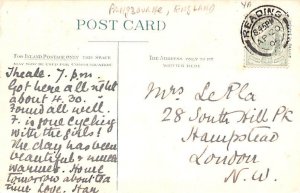 PANGBOURNE, ENGLAND
POST CARD
FOR INLAND POSTAGE ONLY THIS SPACE
MAY NOW BE USED FOR
THE ADDRESS ONLY TO BE
WRITTEN HERE
READING
8.45PM
AP 20
Theale. 7. p.m.
Got here all right
about 4.30.
Found all well.
F. is gone cycling
with the girls!
The day has been
beautiful & much
warmer. Home
tomorrow about tea
time Love. Har
Mrs Le Pla
28 South Hill Pk
Hampstead
London
N.W.